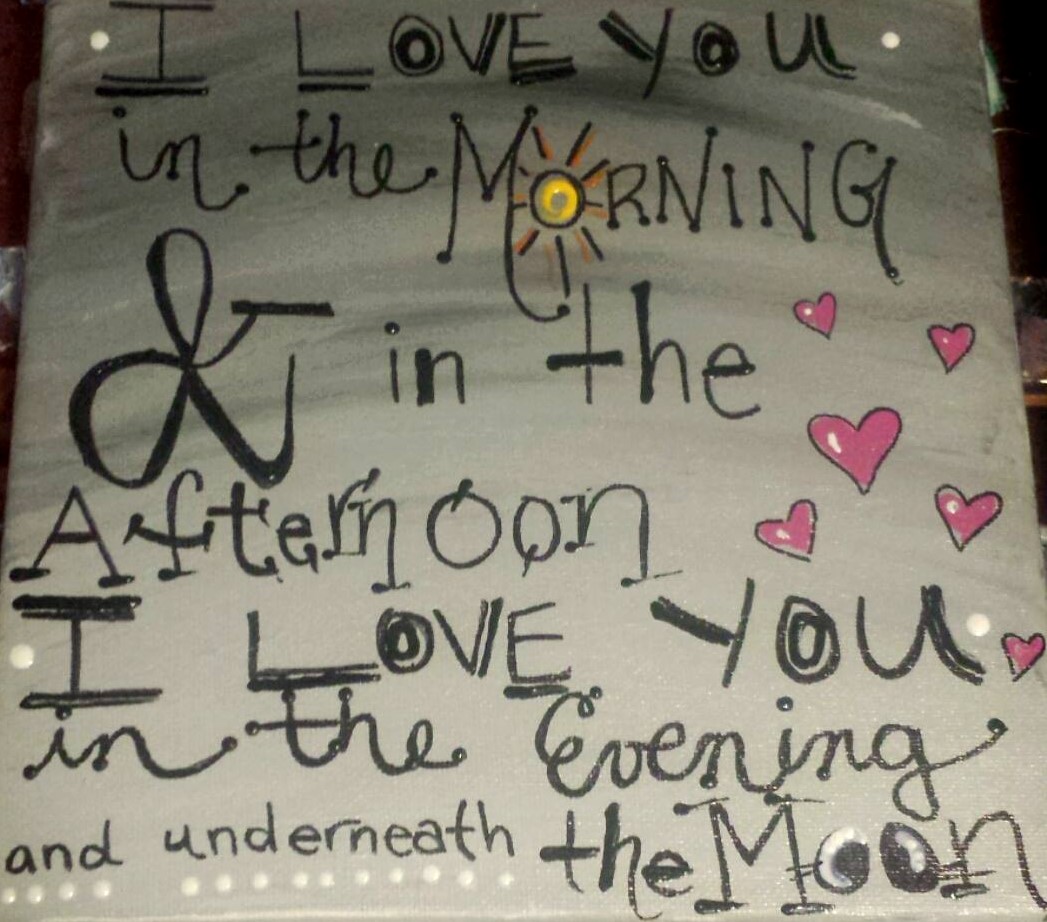 I LOVE YOU
in the MORNING
& in the
Afternoon
I LOVE YOU
in the Evening
and underneath the Moon